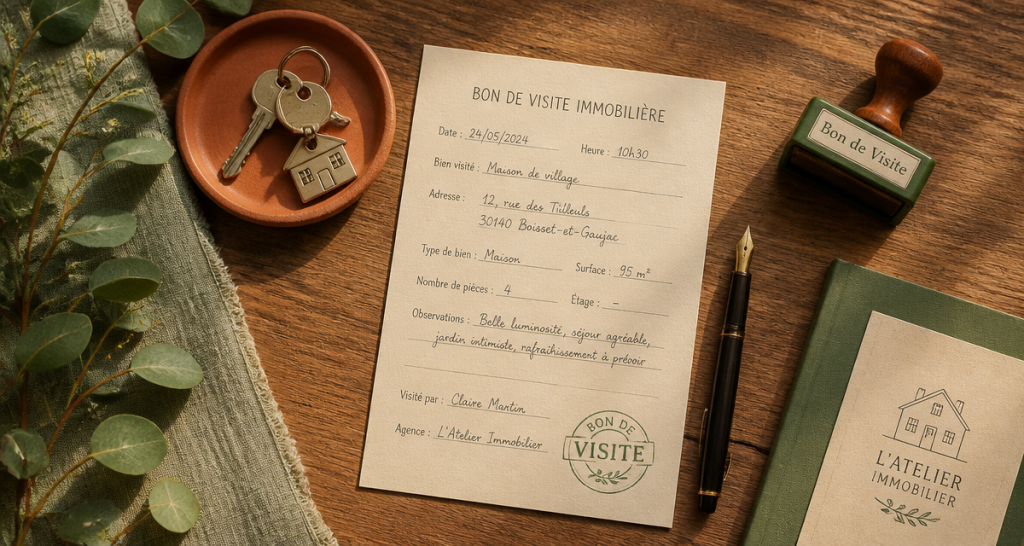 BON DE VISITE IMMOBILIÈRE
Date : 24/05/2024 Heure : 10h30
Bien visité : Maison de village
Adresse : 12, rue des Tilleuls
30140 Boisset-et-Gaujac
Type de bien : Maison Surface : 95 m²
Nombre de pièces : 4 Étage : –
Observations : Belle luminosité, séjour agréable,
jardin intimiste, rafraîhissement à prévoir
Visité par : Claire Martin
Agence : L'Atelier Immobilier
BON DE
VISITE
Bon de Visite
L'ATELIER
IMMOBILIER